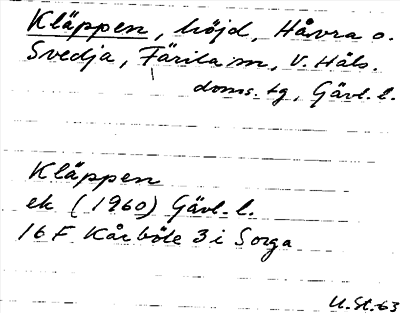 Kläppen, höjd, Håvra o.
Svedja, Färila sn, V. Häls.
doms. tg, Gävl. l.
Kläppen
ek (1960) Gävl. l.
16 F Kårböle 3 i Sorga
U. St. 63